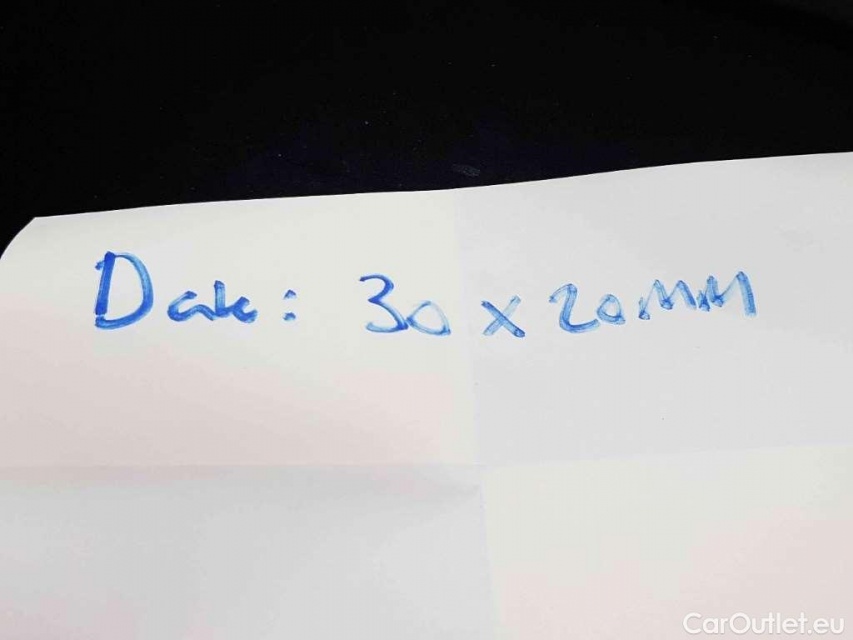 Dak: 30 x 20MM
CarOutlet.eu